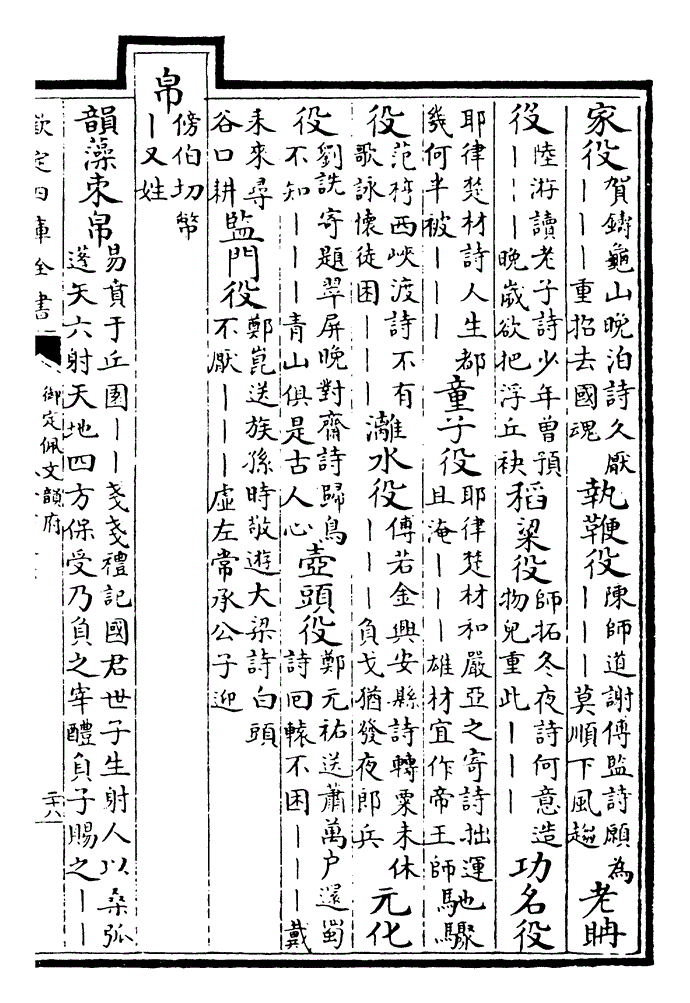 家役賀鑄龜山晚泊詩久厭｜｜｜重招去國魂執鞭役陳師道謝傅監詩願為｜｜｜莫順下風趨老聃
役陸游讀老子詩少年曾預｜｜｜｜晚歲欲把浮丘袂稻粱役師拓冬夜詩何意造物兒重此｜｜｜功名役
耶律楚材詩人生都幾何半被｜｜｜童子役耶律楚材和嚴亞之寄詩拙運且淹｜｜｜雄材宜作帝王師馳驟
役范梈西峽渡詩不有歌詠懷徒困｜｜｜灕水役傅若金興安縣詩轉粟未休｜｜｜負戈猶發夜郎兵元化
役劉詵寄題翠屏晚對齋詩歸鳥不知｜｜｜青山俱是古人心壺頭役鄭元祐送蕭萬户還蜀詩回轅不困｜｜｜戴
耒來尋谷口耕監門役鄭崑送族孫時敬遊大梁詩白頭不厭｜｜｜虛左常承公子迎
帛傍伯切幣｜又姓
韻藻束帛易賁于丘園｜｜戔戔禮記國君世子生射人以桑弧蓬矢六射天地四方保受乃負之宰醴負子賜之｜｜
欽定四庫全書
御定佩文韻府
二十八